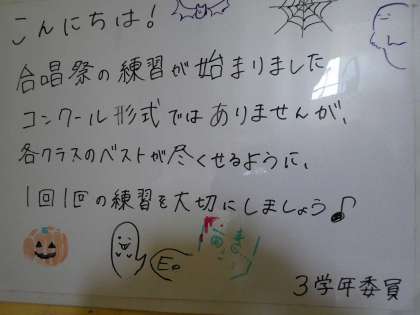 こんにちは!
合唱祭の練習が始まりました
コンクール形式ではありませんが、
各クラスのベストが尽くせるように、
1回1回の練習を大切にしましょう♪
E。
3学年委員